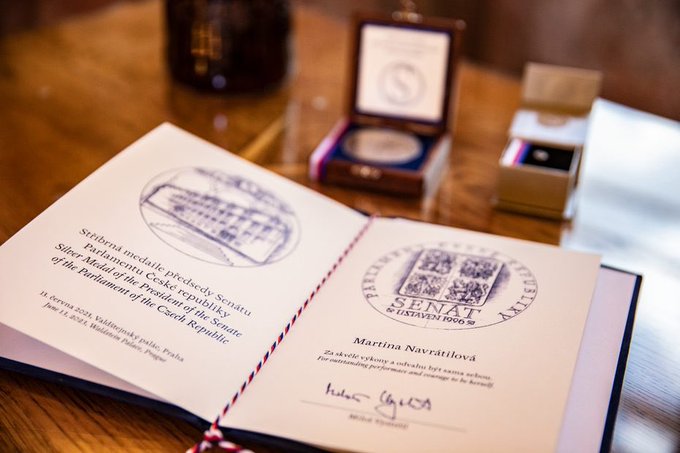 Stříbrná medaile předsedy Senátu
Parlamentu České republiky
Silver Medal of the President of the Senate
of the Parliament of the Czech Republic
13. června 2021, Valdštejnský palác, Praha
June 13, 2021, Waldstein Palace, Prague
PARLAMENT ČESKÉ REPUBLIKY
SENÁT
USTAVEN 1996
Martina Navrátilová
Za skvělé výkony a odvahu být sama sebou.
For outstanding performance and courage to be herself.
Miloš Vystrčil
S